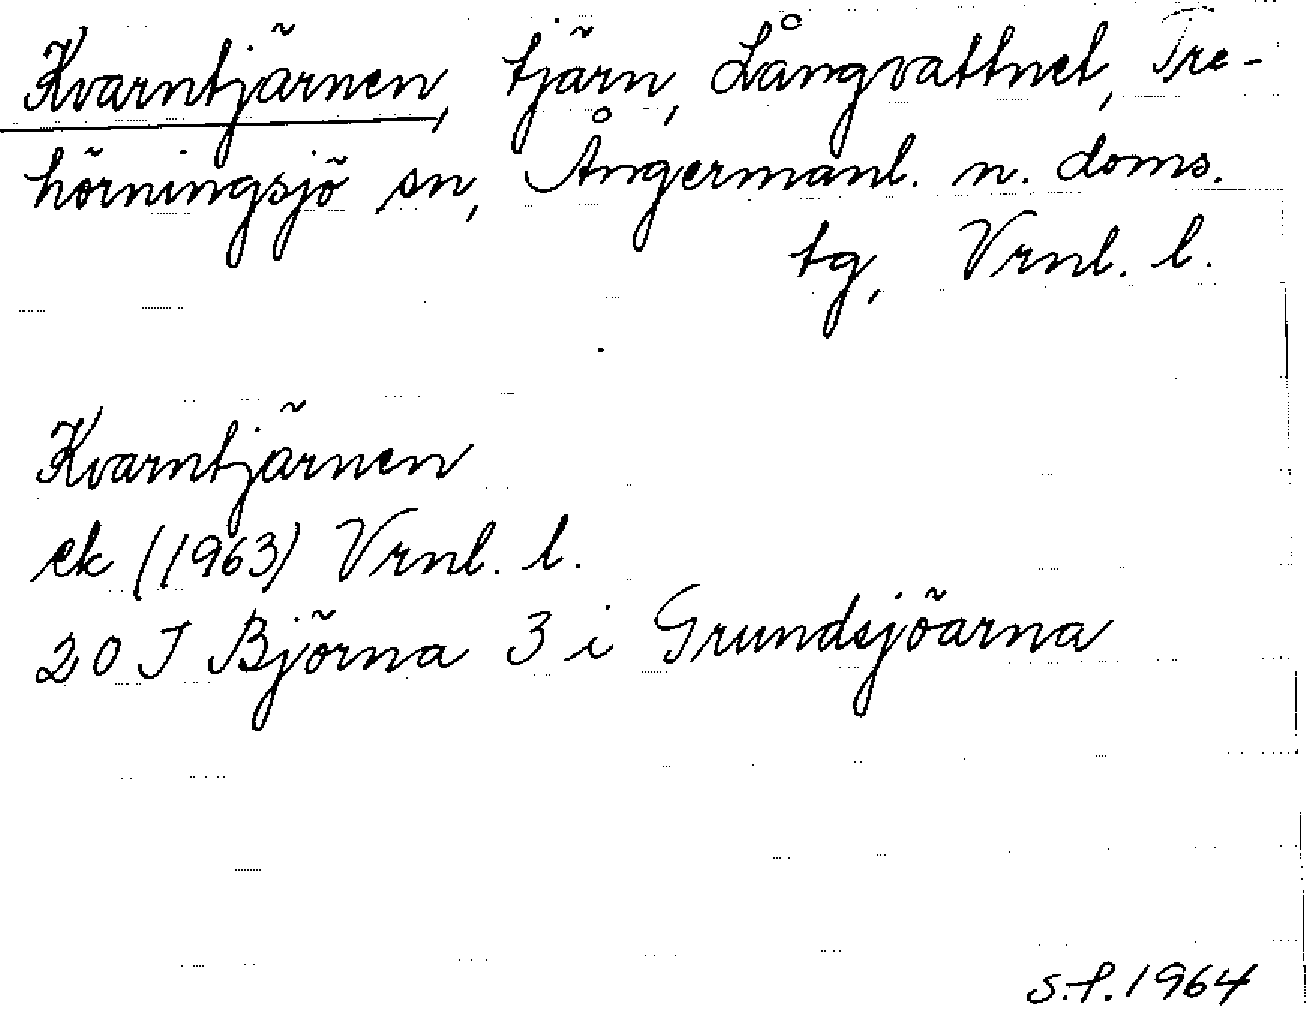 Kvarntjärnen, tjärn, Långvattnet, Tre-
hörningsjö sn, Ångermanl. n. doms.
tg, Vrnl. l.
Kvarntjärnen
ek (1963) Vrnl. l.
20 J Björna 3 i Grundsjöarna
S.f. 1964